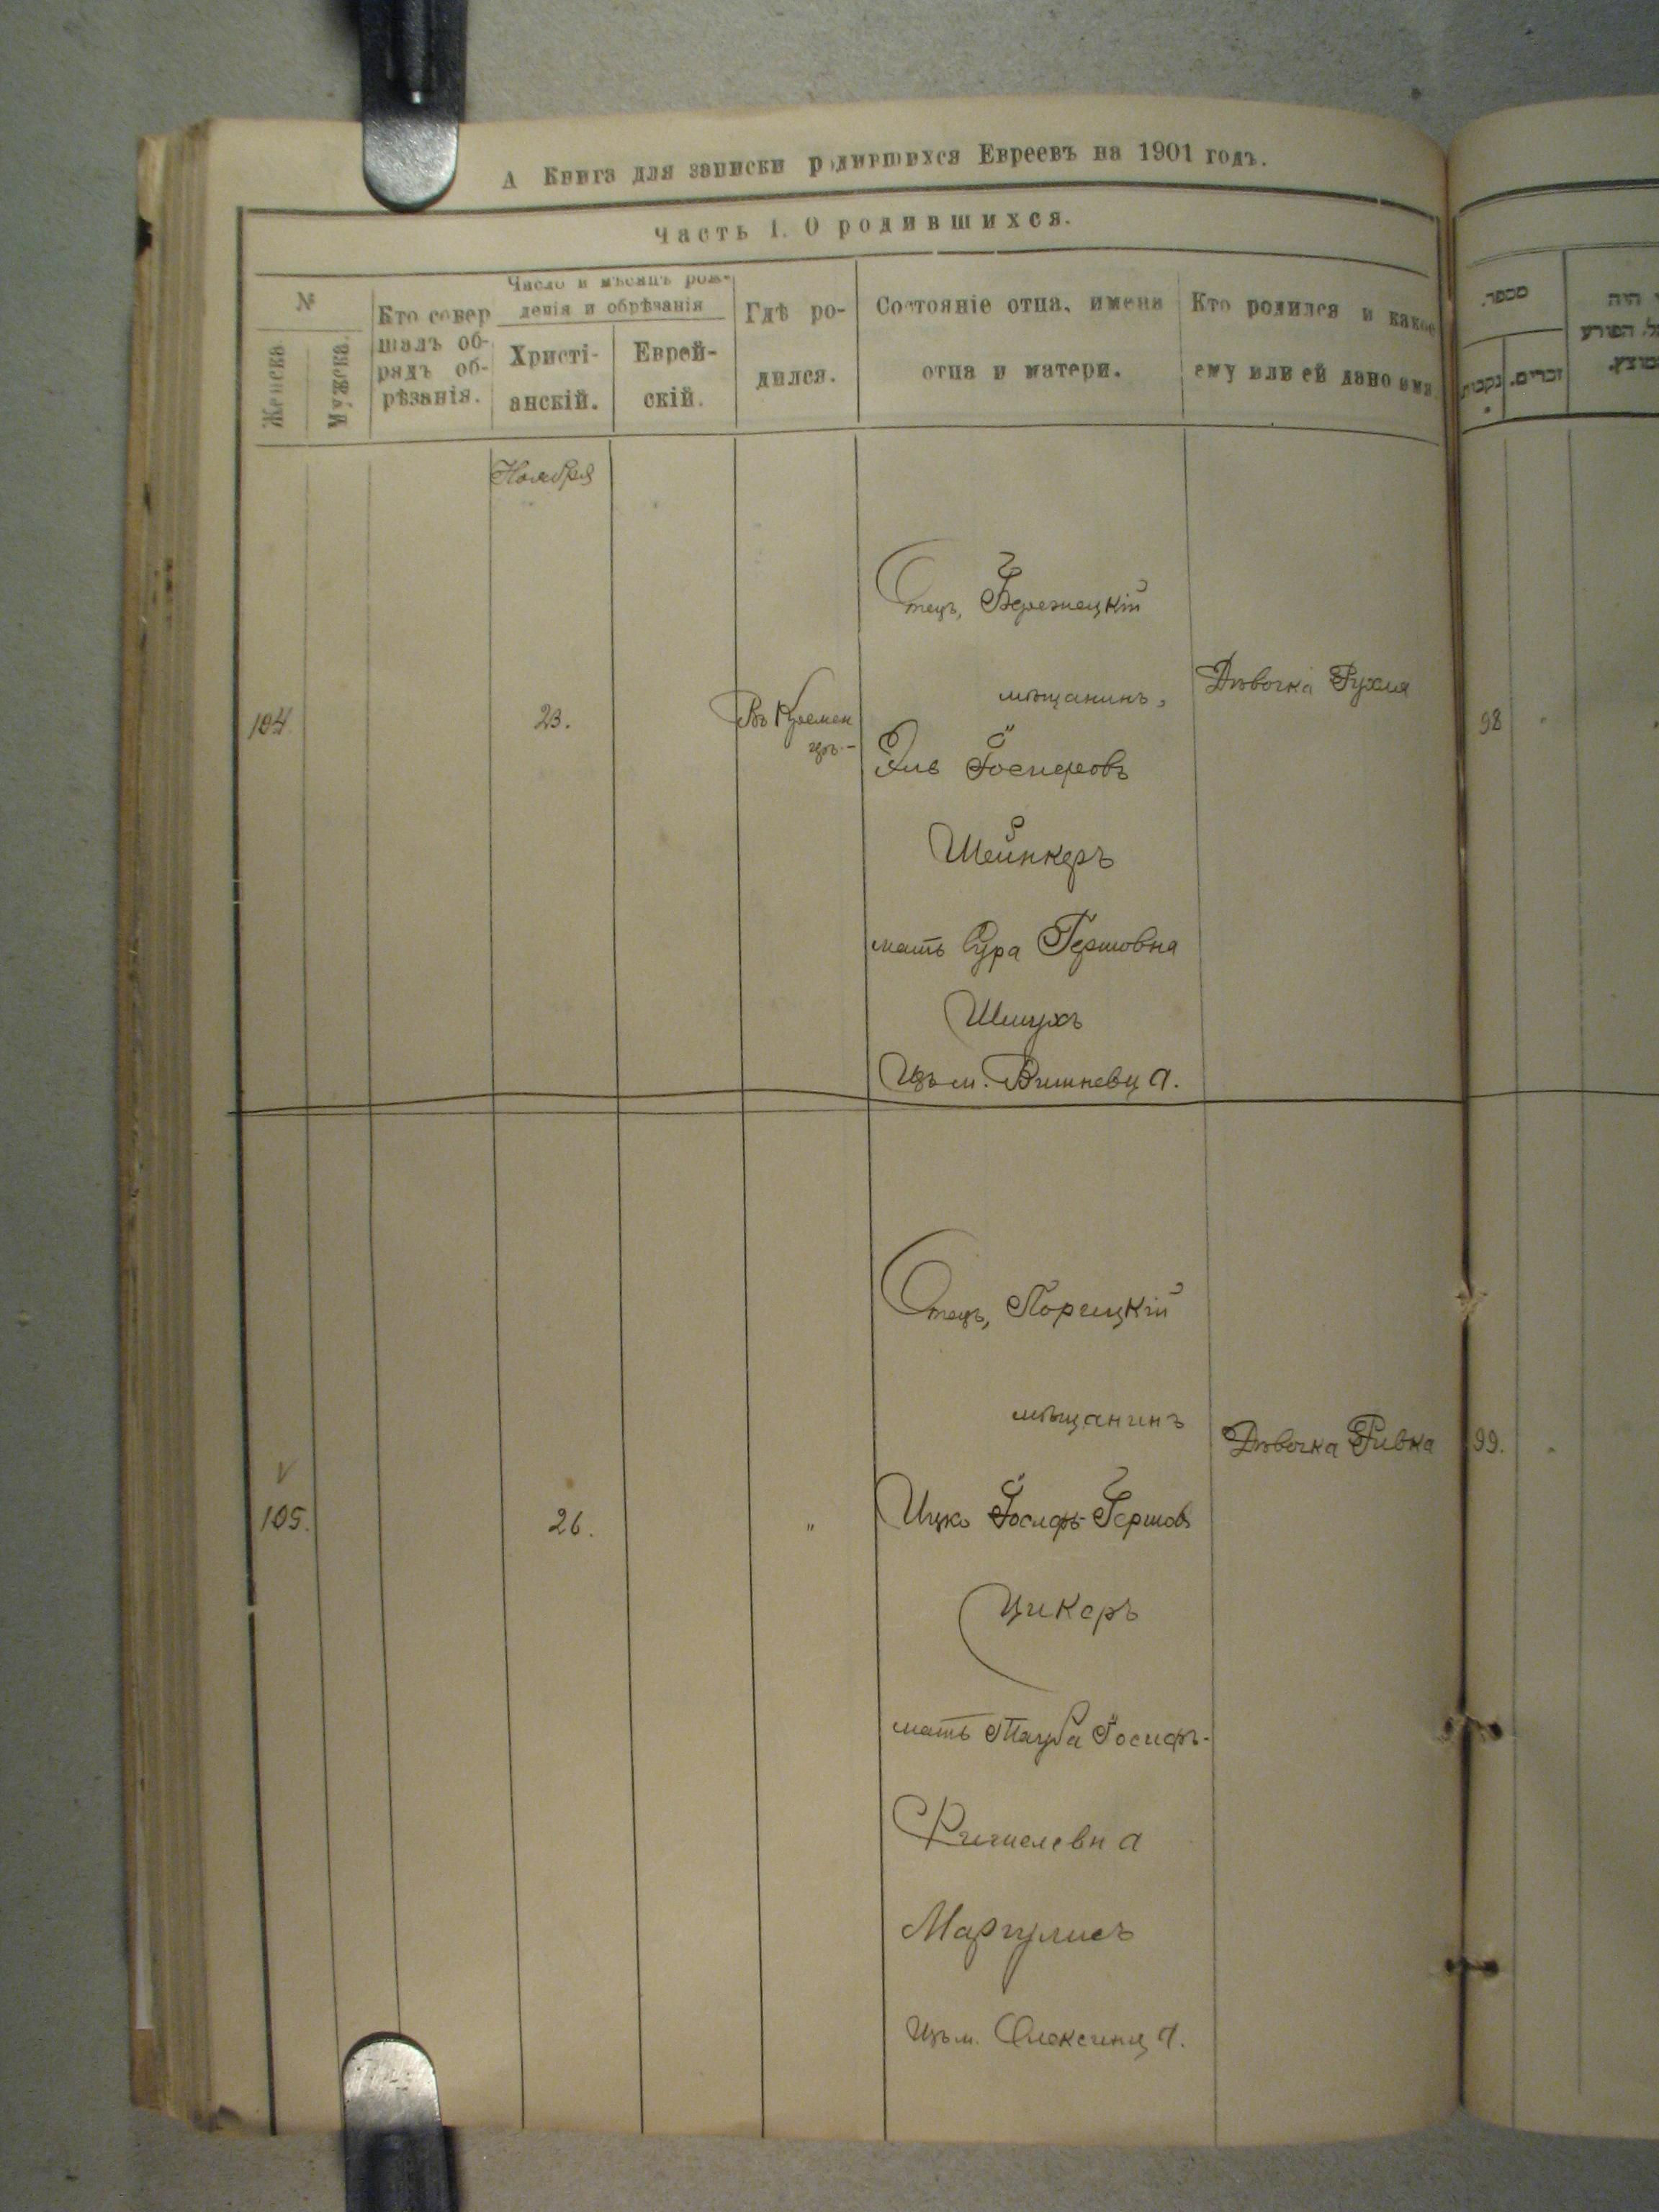 А Книга для записки родившихся Евреевъ на 1901 годъ.
Часть 1. О родившихся.
№
Женска
Мужска.
Кто совер
шалъ об-
рядъ об-
рѣзанія.
Число и мѣсяцъ рож-
денія и обрѣзанія
Христі-
анскій.
Еврей-
скій.
Гдѣ ро-
дился.
Состояніе отца, имена
отца и матери.
Кто родился и какое
ему или ей дано имя
Ноября
104.
23.
Въ Кремен
цѣ.-
Отецъ, Бережецкій
мѣщанинъ,
Эль Іосифовъ
Шейнкеръ
мать Сура Гершовна
Шмухъ
Изъ м. Вишневца.
Дѣвочка Рухля
105.
26.
"
Отецъ, Порицкій
мѣщанинъ
Ицко Іосифъ-Гершовъ
Цикеръ
мать Тауба Іосифъ-
Фишелевна
Маргулисъ
Изъ м. Олексинца.
Дѣвочка Ривка
מספר.
נקבות
זכרים.
היה
הפורע
98
99.